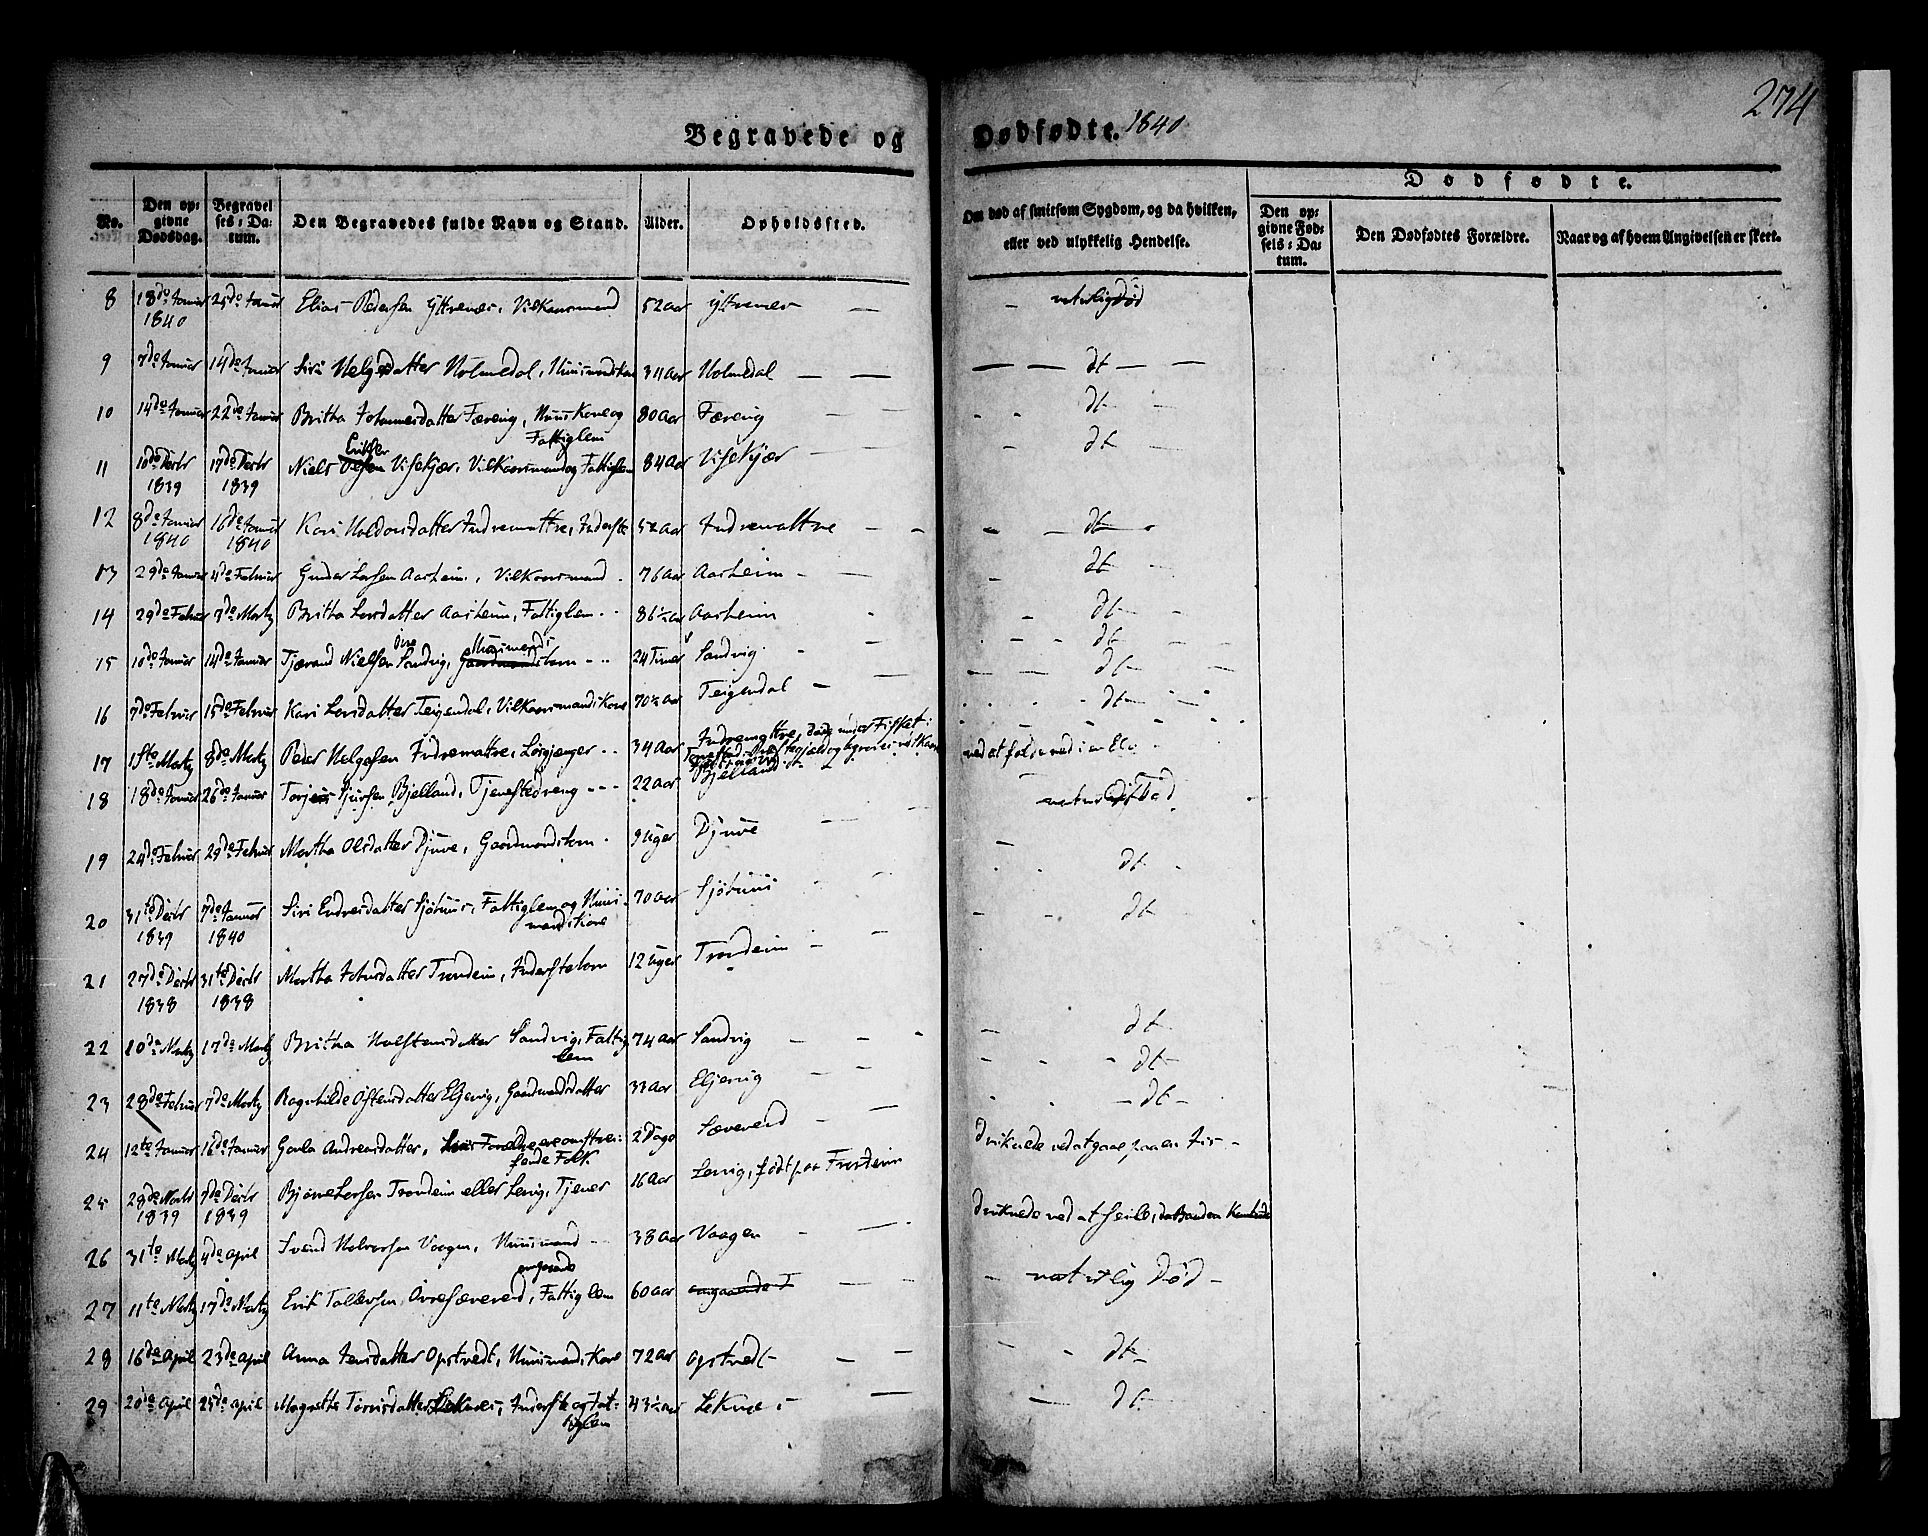 274
Begravede og Dødfødte. 1840
No.
Den opgivne Dødsdag.
Begravelses-Datum.
Den Begravedes fulde Navn og Stand.
Alder.
Opholdssted.
Om død af smitsom Sygdom, og da hvilken, eller ved ulykkelig Hendelse.
Dødfødte.
Den opgivne Fødsels-Datum.
Den Dødfødtes Forældre.
Naar og af hvem Angivelsen er skeet.
8 18de Januar 1840 25de Januar Elias Pedersen Yttrenæs, Vilkaarsmand 52 Aar Yttrenæs — naturlig død
9 7de Januar 14de Januar Siri Helgesdatter Holmedal, Huusmandskone 34 Aar Holmedal — dt
10 14de Januar 22de Januar Britha Johannesdatter Færevig, Huuskone og Fattiglem 80 Aar Færevig dt
11 10de Decbr 1839 17de Decbr 1839 Niels Olsen Eriksen Visekjær, Vilkaarsmand og Fattiglem 84 Aar Visekjær dt
12 8de Januar 1840 16de Januar 1840 Kari Haldorsdatter Indremattre, Inderste Aar Indremattre dt
13 29de Januar 4de Februar Gunder Larsen Aarheim, Vilkaarsmand 76 Aar Aarheim dt
14 29de Februar 7de Martz Britha Larsdatter Aarheim, Fattiglem 86½ Aar Aarheim dt
15 10de Januar 14de Januar Tjærand Nielsen Sandvig, Gaardmandsbarn Huusmands 24 Timer Sandvig dt
16 7de Februar 15de Februar Kari Larsdatter Teigendal, Vilkaarsmandskone 70½ Aar Teigendal dt
17 1ste Martz 8de Martz Peder Helgesen Indremattre, Løsgjænger 34 Aar Indremattre, døde under Fisket ved at falde ned i en Elv
18 18de Januar 26de Januar Torjus Sjursen Bjelland, Tjenestedreng 22 Aar Bjelland naturlig Død
19 24de Februar 29de Februar Martha Olsdatter Djuve, Gaardmandsbarn 9 Uger Djuve dt
20 31te Decbr 1839 7de Januar 1840 Siri Endresdatter Sjøhuus, Fattiglem og Huusmandskone 70 Aar Sjøhuus dt
21 27de Decbr 1838 31te Decbr 1838 Martha Johnsdatter Trondeim, Inderstebarn 12 Uger Trondeim dt
22 10de Martz 17de Martz Britha Halstensdatter Sandvig, Fattiglem 74 Aar Sandvig dt
23 28de Februar 7de Martz Ragnhilde Østensdatter Eljevig, Gaardmandsdatter 33 Aar Eljevig dt
24 12te Januar 16de Januar Gorla Andreasdatter, hvis Forældre ere omstreifende Folk 2 Dage Sæverend dt
25 29de Novbr 1839 7de Decbr 1839 Bjørne Larsen Trondeim eller Lervig, Tjener 16 Aar Lervig, født paa Trondeim druknede ved at gaae paa en Iis
26 31te Martz 4de April Svend Halvorsen Vaagen, Huusmand 38 Aar Vaagen druknede ved at seile, da Baaden kandtrede
27 11te Martz 17de Martz Erik Tollefsen Øvresæverend, Fattiglem omgaaende 60 Aar omgaaende naturlig Død
28 16de April 23de April Anna Jensdatter Opstvedt, Huusmands Kone 72 Aar Opstvedt dt
29 20de April 25de April Magrethe Tørrisdatter Lekne, Inderste og Fattiglem 43½ Aar Lekne dt